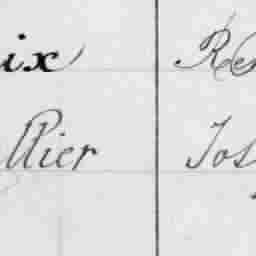 ix Re
llier Jos